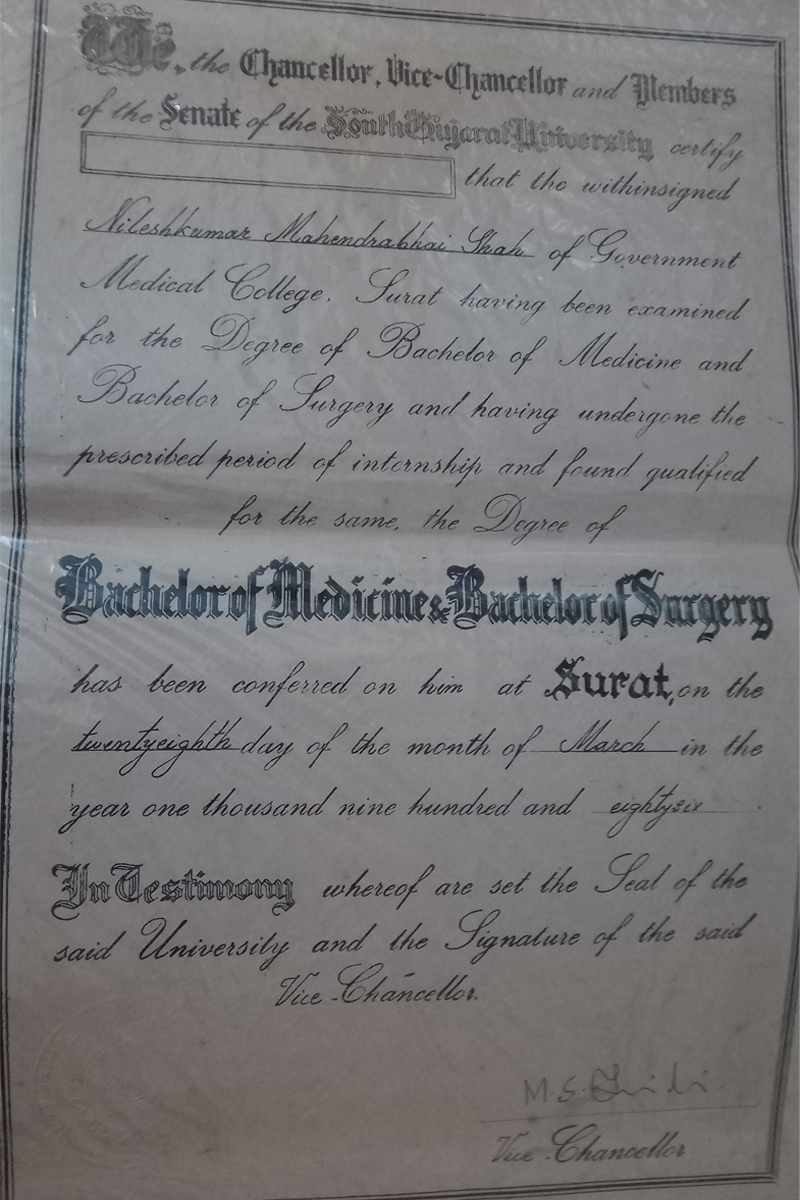 We, the Chancellor, Vice-Chancellor and Members
of the Senate of the South Gujarat University certify
that the withinsigned
Nileshkumar Mahendrabhai Shah of Government
Medical College, Surat having been examined
for the Degree of Bachelor of Medicine and
Bachelor of Surgery and having undergone the
prescribed period of internship and found qualified
for the same, the Degree of
Bachelor of Medicine & Bachelor of Surgery
has been conferred on him at Surat, on the
twentyeighth day of the month of March in the
year one thousand nine hundred and eightysix
In Testimony whereof are set the Seal of the
said University and the Signature of the said
Vice-Chancellor.
M.S.
Vice-Chancellor